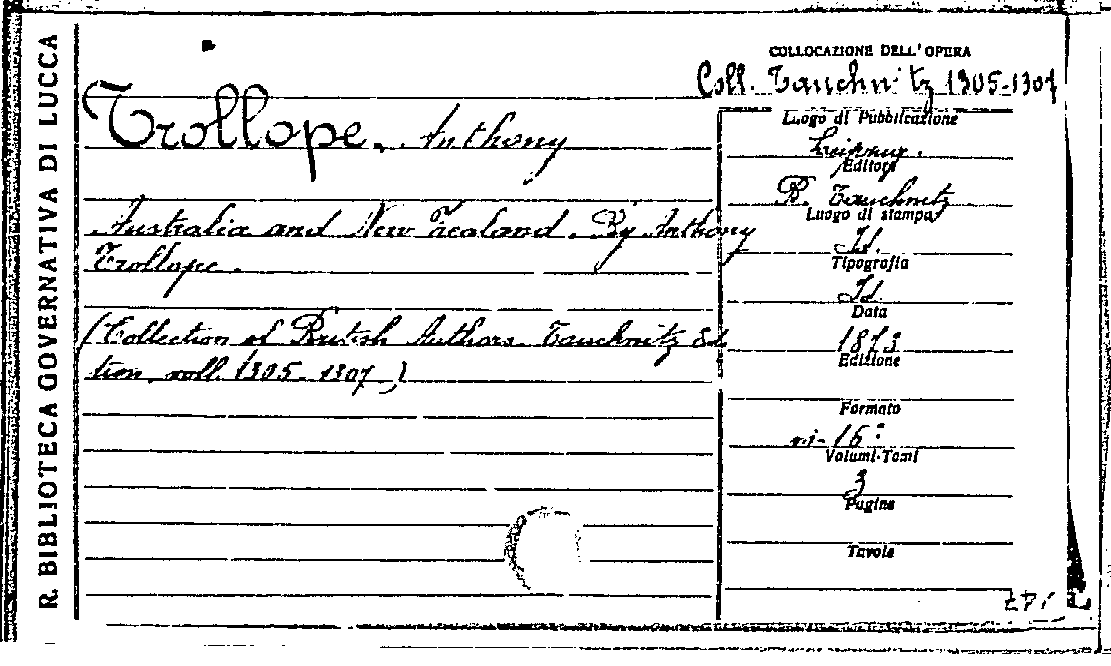 R. BIBLIOTECA GOVERNATIVA DI LUCCA
COLLOCAZIONE DELL'OPERA
Coll. Tauchnitz 1305-1307
Trollope, Anthony
Australia and New Zealand. By Anthony
Trollope.
(Collection of British Authors. Tauchnitz Edi
tion, voll. 1305-1307)
Luogo di Pubblicazione
Leipzig.
Editore
B. Tauchnitz
Luogo di stampa
Id.
Tipografia
Id
Data
1873
Edizione
Formato
in-16°
Volumi-Tomi
3
Pagine
Tavole